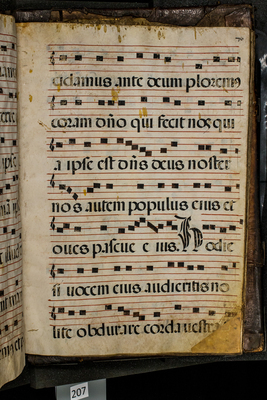 cidamus ante deum ploremus
coram dño qui fecit nos qui
a ipse est dñs deus noster
nos autem populus eius et
oues pascue e ius. Hodie
si uocem eius audieritis no
lite obdurare corda uestra
207